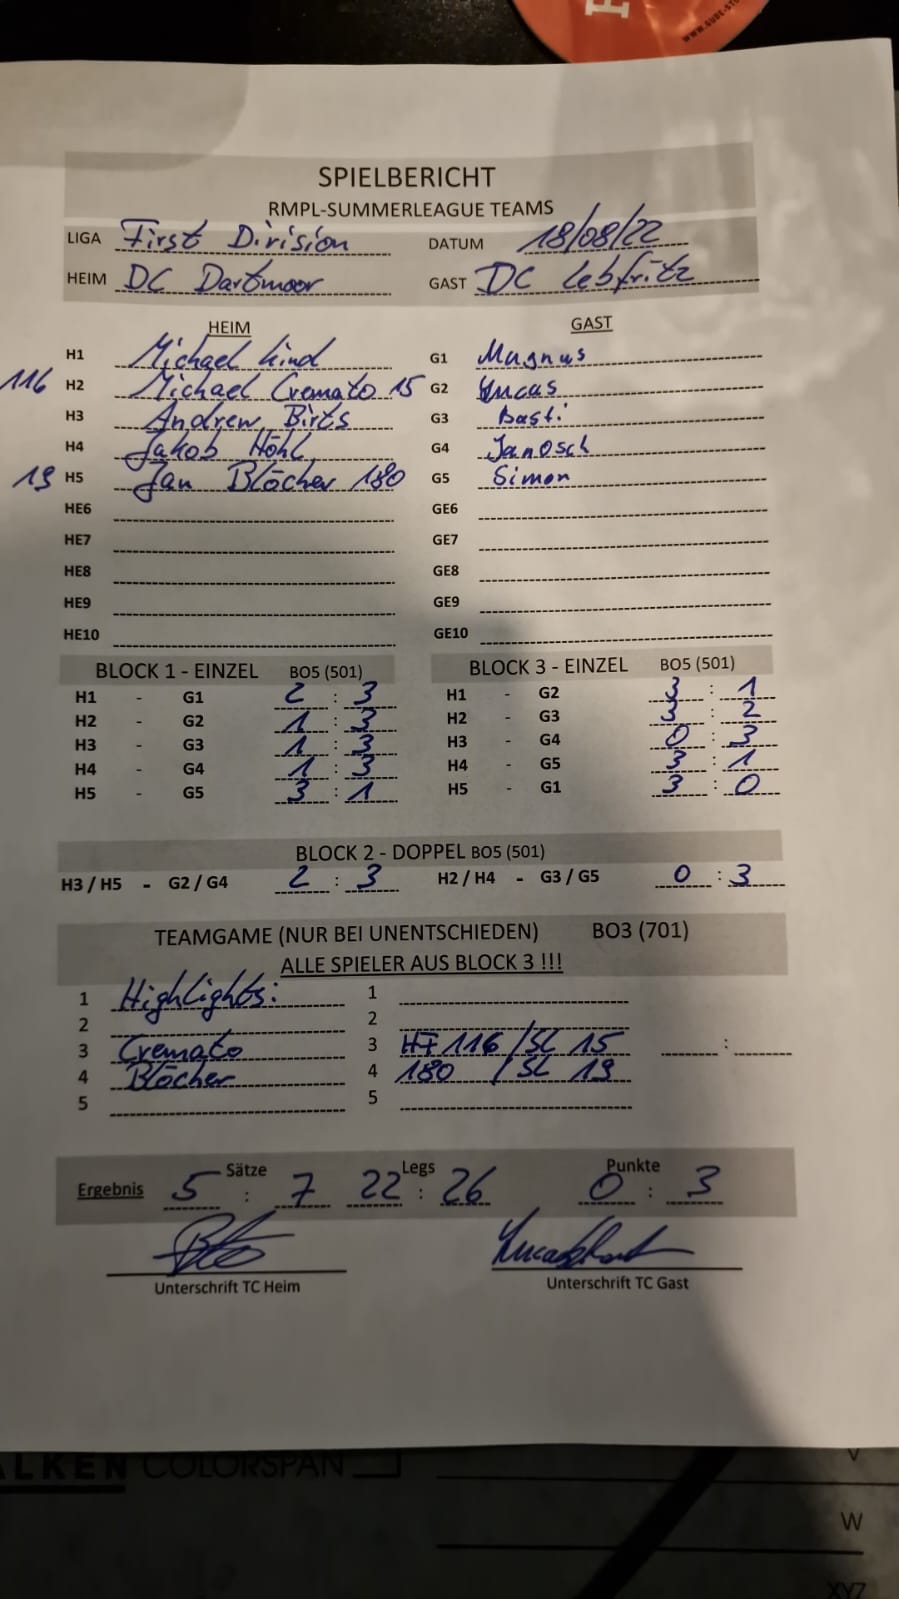 SPIELBERICHT
RMPL-SUMMERLEAGUE TEAMS
LIGA First Division DATUM 18/08/22
HEIM DC Dartmoor GAST DC Lebfritz
HEIM GAST
H1 Michael Lind G1 Magnus
116 H2 Michael Cremato 15 G2 Lucas
H3 Andrew Birts G3 Basti
H4 Jakob Höhl G4 Janosch
19 H5 Jan Blöcher 180 G5 Simon
HE6 GE6
HE7 GE7
HE8 GE8
HE9 GE9
HE10 GE10
BLOCK 1 - EINZEL BO5 (501) BLOCK 3 - EINZEL BO5 (501)
H1 - G1 2 : 3 H1 - G2 3 : 1
H2 - G2 1 : 3 H2 - G3 3 : 2
H3 - G3 1 : 3 H3 - G4 0 : 3
H4 - G4 1 : 3 H4 - G5 3 : 1
H5 - G5 3 : 1 H5 - G1 3 : 0
BLOCK 2 - DOPPEL BO5 (501)
H3 / H5 - G2 / G4 2 : 3 H2 / H4 - G3 / G5 0 : 3
TEAMGAME (NUR BEI UNENTSCHIEDEN) BO3 (701)
ALLE SPIELER AUS BLOCK 3 !!!
1 Highlights: 1
2 2
3 Cremato 3 HF 116 / SL 15 :
4 Blöcher 4 180 / SL 19
5 5
Sätze Legs Punkte
Ergebnis 5 : 7 22 : 26 0 : 3
Unterschrift TC Heim Unterschrift TC Gast
ALKEN COLORSPAN
V
W
XYZ